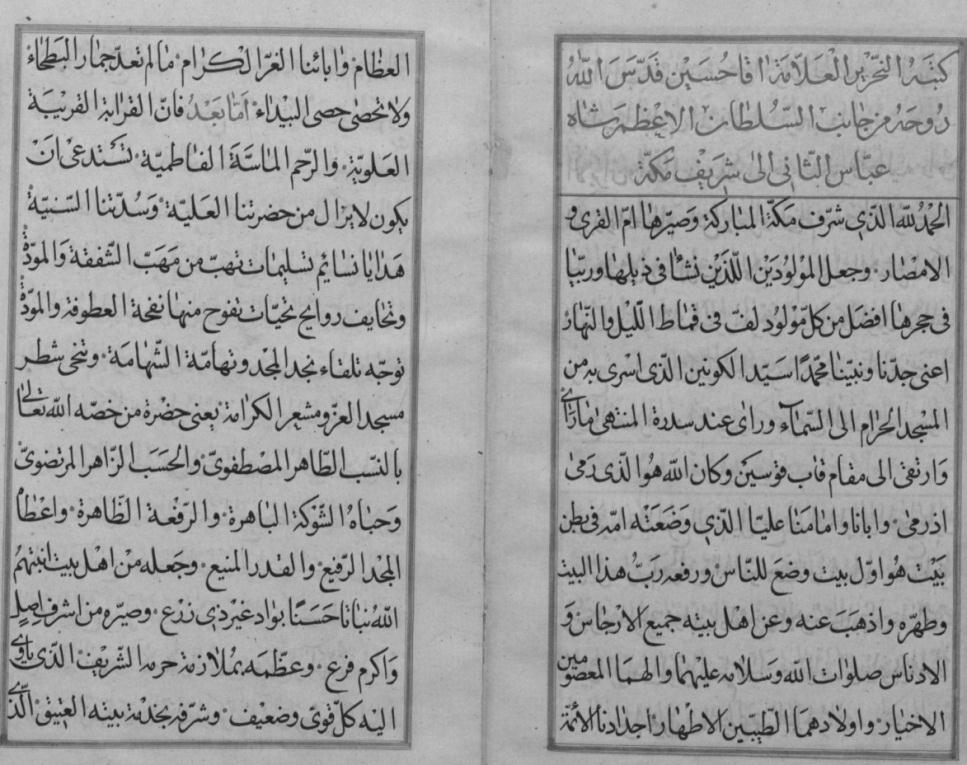 كتبه النحرير العلامة اقا حسين قدّس الله
روحه من جانب السّلطان الاعظم شاه
عبّاس الثّانی الى شريف مكّة
الحمد لله الذّي شرّف مكّة المباركة وصيّرها امّ القرى و
الامصار وجعل المولودين اللّذين نشئا في ذيلها وربّيا
في حجرها افضل من كلّ مولود لفّ في قماط اللّيل والنّهار
اعنى جدّنا ونبيّنا محمّدًا سيّد الكونين الذّى اسرى به من
المسجد الحرام الى السّماء ورأى عند سدرة المنتهى ما رأى
وارتقى الى مقام قاب قوسين وكان الله هو الذّى رمى
اذ رمى وابانا وامامنا عليّا الذّي وضعته امّه في بطن
بيت هو اوّل بيت وضع للنّاس ورفعه ربّ هذا البيت
وطهّره واذهب عنه وعن اهل بيته جميع الارجاس و
الادناس صلوات الله وسلامه عليهما والهما المعصومين
الاخيار واولادهما الطّيبّين الاطهار اجدادنا الائمّة
العظام وابائنا الغرّ الكرام ما لم تعدّ جمار البطحاء
ولا تحصى حصى البيداء امّا بعد فانّ القرابة القريبة
العلويّة والرّحم الماسّة الفاطميّة تستدعى ان
يكون لا يزال من حضرتنا العليّة وسدّتنا السّنيّة
هدايا نسائم تسليمات تهبّ من مهبّ الشّفقة والمودّة
وتحايف روايح تحيّات تفوح منها نفحة العطوفة والمودّة
توجّه تلقاء نجد المجد وتهامة الشّهامة وتنحى شطر
مسجد العزّ ومشعر الكرامة يعنى حضرة من خصّه الله تعالى
بالنّسب الطّاهر المصطفوىّ والحسب الزّاهر المرتضوىّ
وحباه الشوكة الباهرة والرّفعة الظّاهرة واعطاه
المجد الرّفيع والقدر المنيع وجعله من اهل بيت انبتهم
الله نباتا حسنًا بواد غير ذي زرع وصيّره من اشرف اصل
واكرم فرع وعظّمه بملازمة حرمه الشّريف الذّى يأوي
اليه كلّ قوىّ وضعيف وشرّفه بخدمة بيته العتيق الّذى